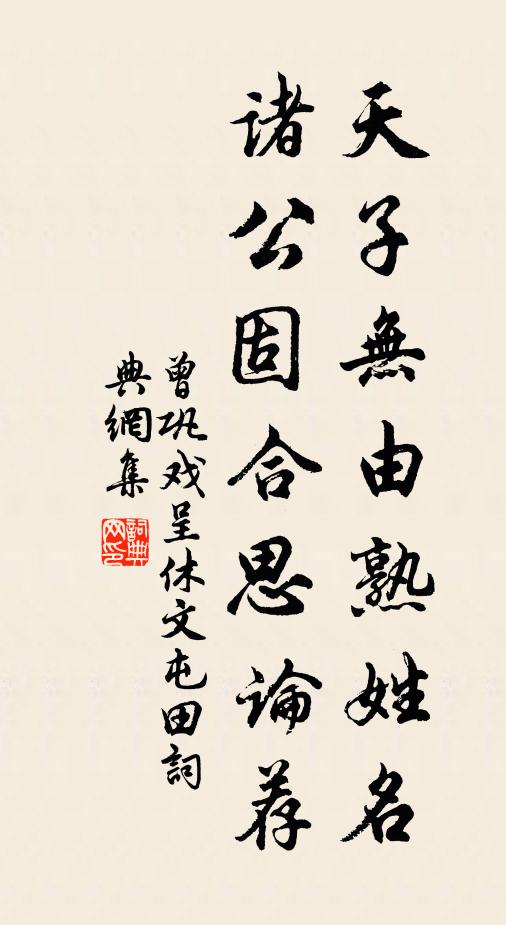 天子無由熟姓名
诸公固合思论荐
曾巩戏呈休文屯田詞
典網集
詞典
网印